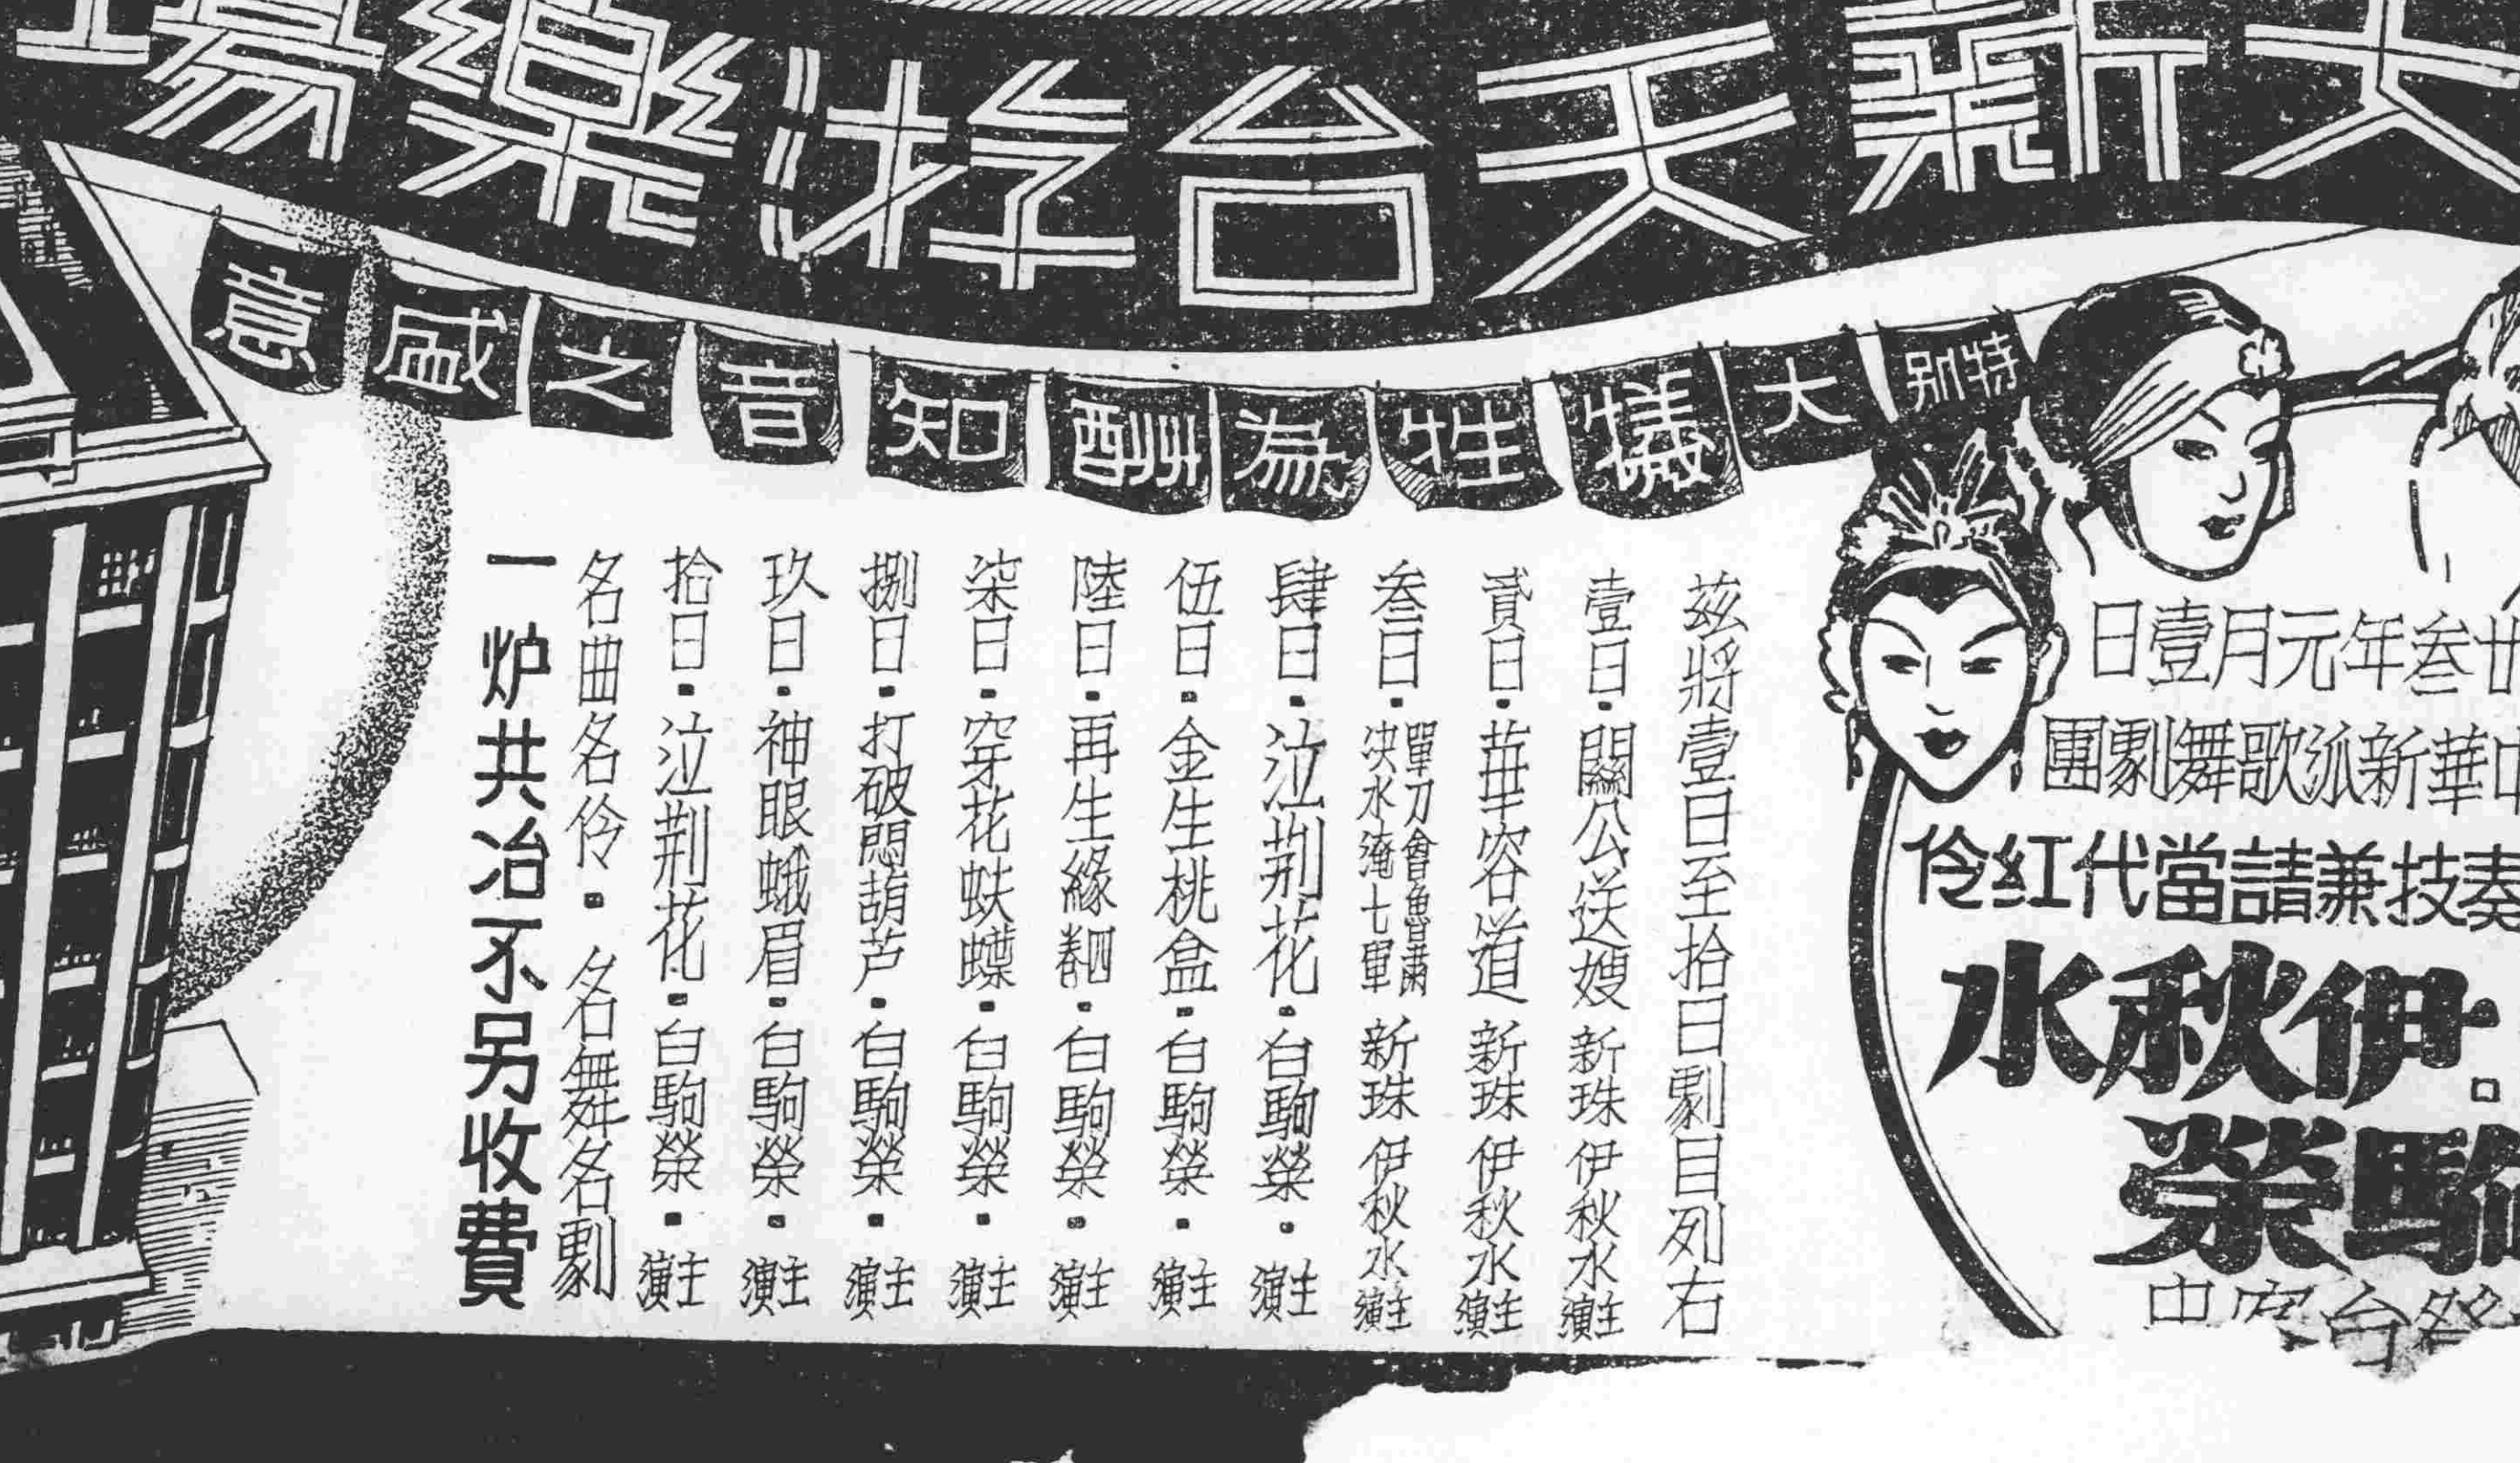 大新天台游樂場
特別大犧牲為酬知音之盛意
廿叁年元月壹日
中華新派歌舞劇團
奏技兼請當代紅伶
伊秋水
駒榮
茲將壹日至拾日劇目列右
壹日·關公送嫂 新珠 伊秋水 主演
貳日·華容道 新珠 伊秋水 主演
叁日·單刀會魯肅 決水淹七軍 新珠 伊秋水 主演
肆日·泣荆花·白駒榮·主演
伍日·金生桃盒·白駒榮·主演
陸日·再生緣四卷·白駒榮·主演
柒日·穿花蛺蝶·白駒榮·主演
捌日·打破悶葫芦·白駒榮·主演
玖日·神眼蛾眉·白駒榮·主演
拾日·泣荆花·白駒榮·主演
名曲名伶·名舞名劇
一炉共冶不另收費